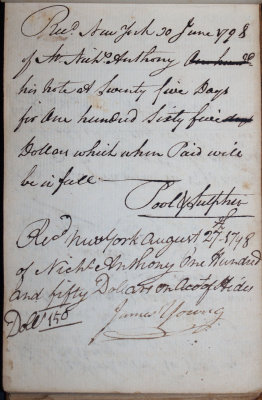 Recd New York 30 June 1798
of Mr Nichs Anthony One hund
his note at Twenty five Days
for One hundred Sixty five
Dollars which when Paid will
be in full
Pool & Sulpher
Recd New York August 27th 1798
of Nichs Anthony One Hundred
and fifty Dollars on Acct of Hides
Dolls 150
James Young